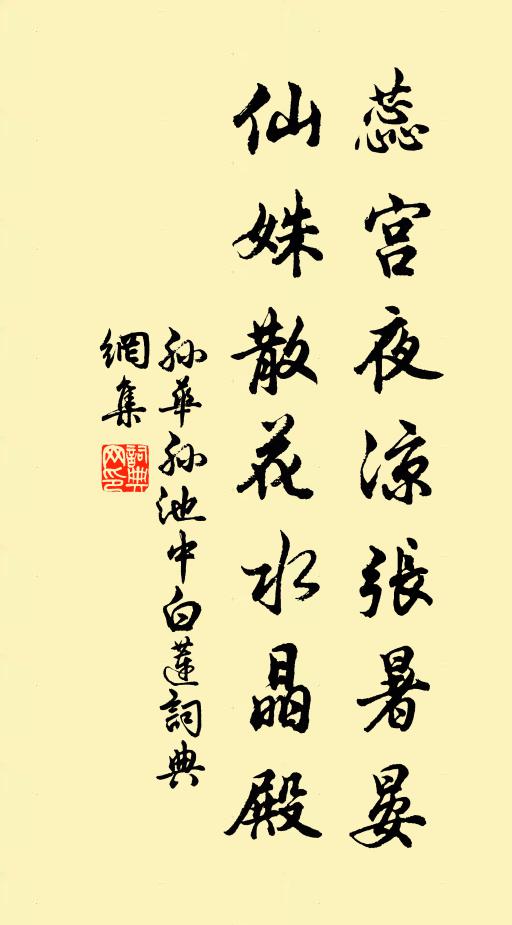 蕊宫夜凉張暑宴
仙姝散花水晶殿
孙華孙池中白蓮詞典
網集
詞典网印